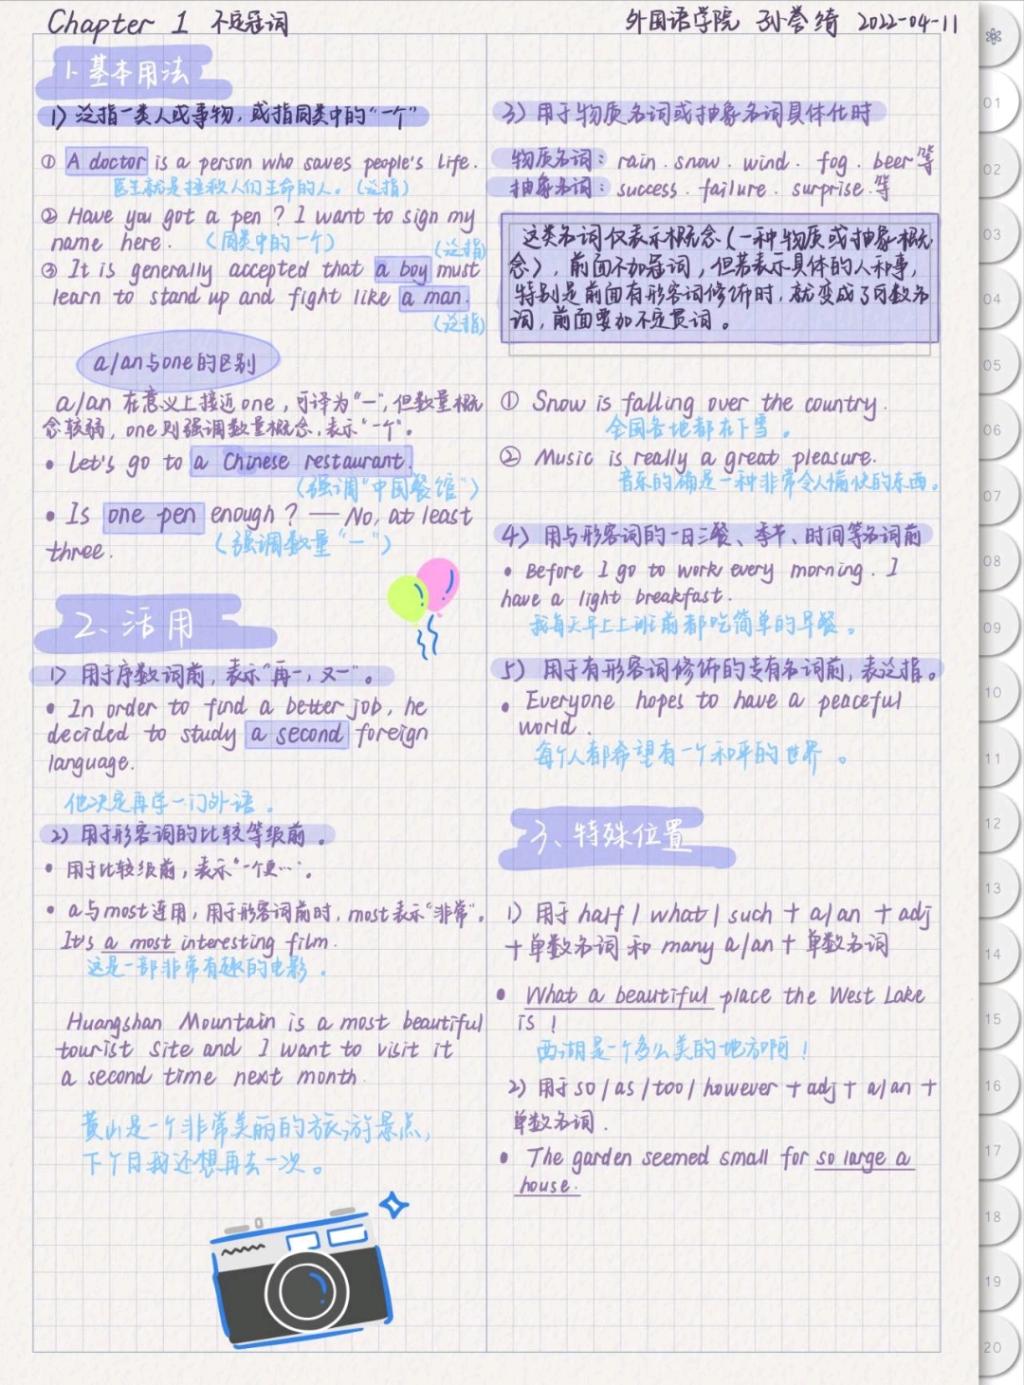 Chapter 1 不定冠词
外国语学院 孙誉绮 2022-04-11
1.基本用法
1) 泛指一类人或事物，或指同类中的"一个"
① A doctor is a person who saves people's life.
医生就是拯救人们生命的人。(泛指)
② Have you got a pen? I want to sign my
name here. (同类中的一个) (泛指)
③ It is generally accepted that a boy must
learn to stand up and fight like a man.
(泛指)
a/an与one的区别
a/an 在意义上接近one，可译为"一"，但数量概
念较弱，one则强调数量概念，表示"一个"。
• Let's go to a Chinese restaurant.
(强调"中国餐馆")
• Is one pen enough? — No, at least
three. (强调数量"一")
2、活用
1) 用于序数词前，表示"再一，又一"。
• In order to find a better job, he
decided to study a second foreign
language.
他决定再学一门外语。
2) 用于形容词的比较等级前。
• 用于比较级前，表示"一个更…"。
• a与most连用，用于形容词前时，most表示"非常"。
It's a most interesting film.
这是一部非常有趣的电影。
Huangshan Mountain is a most beautiful
tourist site and I want to visit it
a second time next month.
黄山是一个非常美丽的旅游景点，
下个月我还想再去一次。
3) 用于物质名词或抽象名词具体化时
物质名词：rain. snow. wind. fog. beer等
抽象名词：success. failure. surprise.等
这类名词仅表示概念(一种物质或抽象概
念)，前面不加冠词，但若表示具体的人和事，
特别是前面有形容词修饰时，就变成了可数名
词，前面要加不定冠词。
① Snow is falling over the country.
全国各地都在下雪。
② Music is really a great pleasure.
音乐的确是一种非常令人愉快的东西。
4) 用与形容词的一日三餐、季节、时间等名词前
• Before I go to work every morning. I
have a light breakfast.
我每天早上上班前都吃简单的早餐。
5) 用于有形容词修饰的专有名词前，表泛指。
• Everyone hopes to have a peaceful
world.
每个人都希望有一个和平的世界。
3、特殊位置
1) 用于 half / what / such + a/an + adj
+单数名词 和 many a/an + 单数名词
• What a beautiful place the West Lake
is !
西湖是一个多么美的地方啊！
2) 用于 so / as / too / however + adj + a/an +
单数名词.
• The garden seemed small for so large a
house.
01
02
03
04
05
06
07
08
09
10
11
12
13
14
15
16
17
18
19
20